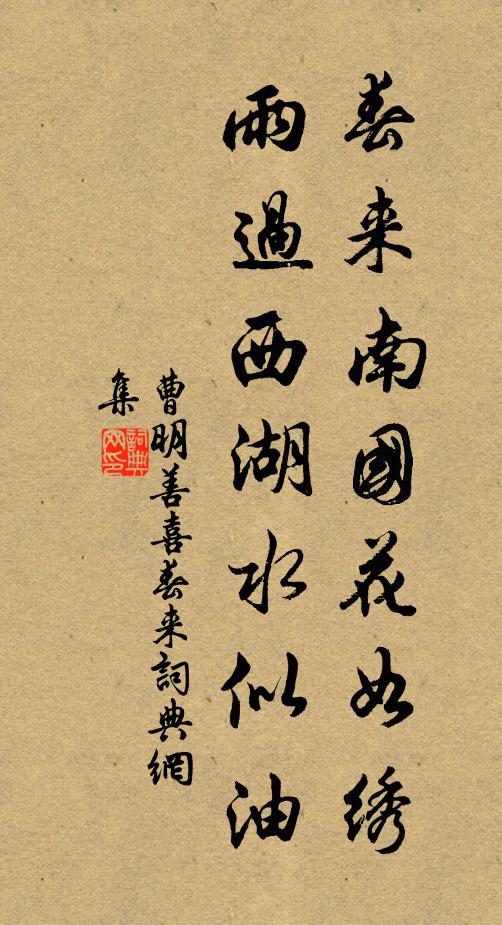 春来南國花如绣
雨過西湖水似油
曹明善喜春来詞典網
集
詞典
网印